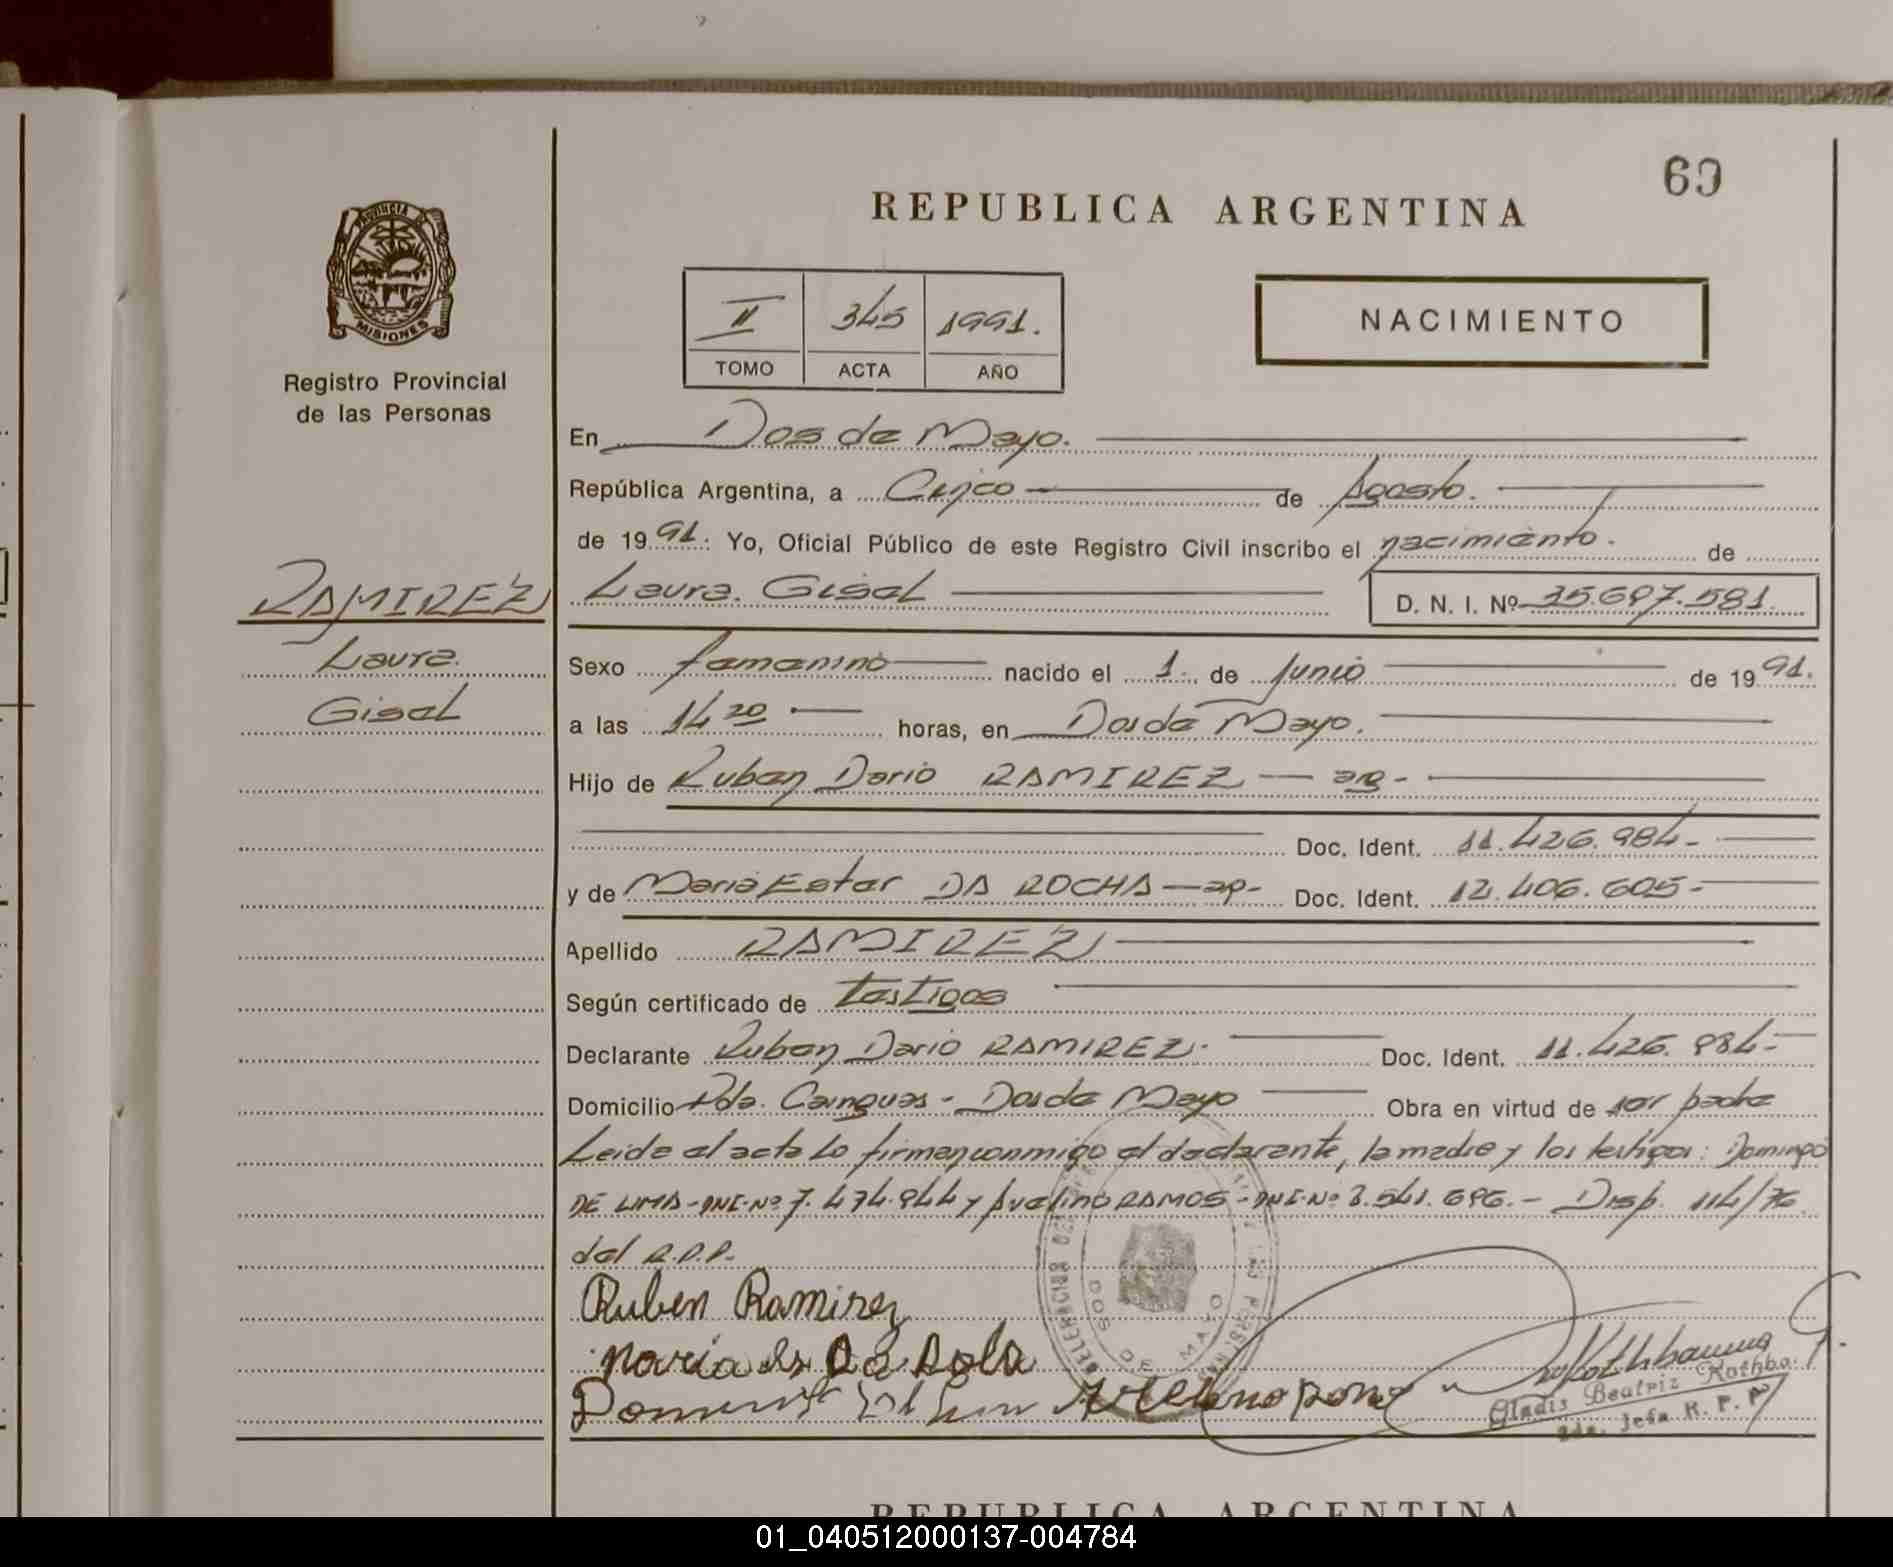 69
REPUBLICA ARGENTINA
PROVINCIA DE
MISIONES
Registro Provincial
de las Personas
II 345 1991.
TOMO ACTA AÑO
NACIMIENTO
En Dos de Mayo.
República Argentina, a Cinco de Agosto.
de 1991: Yo, Oficial Público de este Registro Civil inscribo el nacimiento. de
RAMIREZ
Laura
Gisel
Laura Gisel D. N. I. Nº 35.697.581.
Sexo femenino nacido el 1 de Junio de 1991.
a las 14 20 horas, en Dos de Mayo.
Hijo de Ruben Dario RAMIREZ — arg-
Doc. Ident. 11.426.984-
y de Maria Ester DA ROCHA — ap- Doc. Ident. 12.406.605-
Apellido RAMIREZ
Según certificado de testigos
Declarante Ruben Dario RAMIREZ. Doc. Ident. 11.426.984-
Domicilio Pdo. Cainguas - Dos de Mayo Obra en virtud de ser padre
Leida el acta lo firman conmigo el declarante, la madre y los testigos: Domingo
DE LIMA - DNI-Nº 7.474.944 y Avelino RAMOS - DNI-Nº 8.541.696.- Disp. 114/76
del R.P.P.
Ruben Ramirez
DOS DE MAYO
Gladis Beatriz Rothba
2da. Jefa R. P. P.
REPUBLICA ARGENTINA
01_040512000137-004784